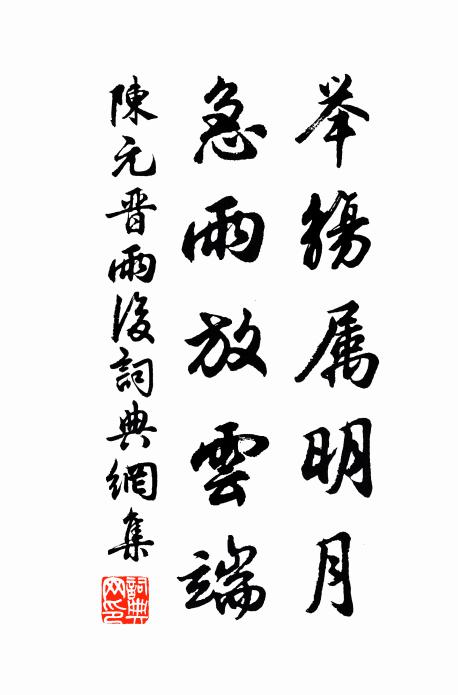 举觞属明月
急雨放雲端
陳元晋雨後詞典網集
詞典网印